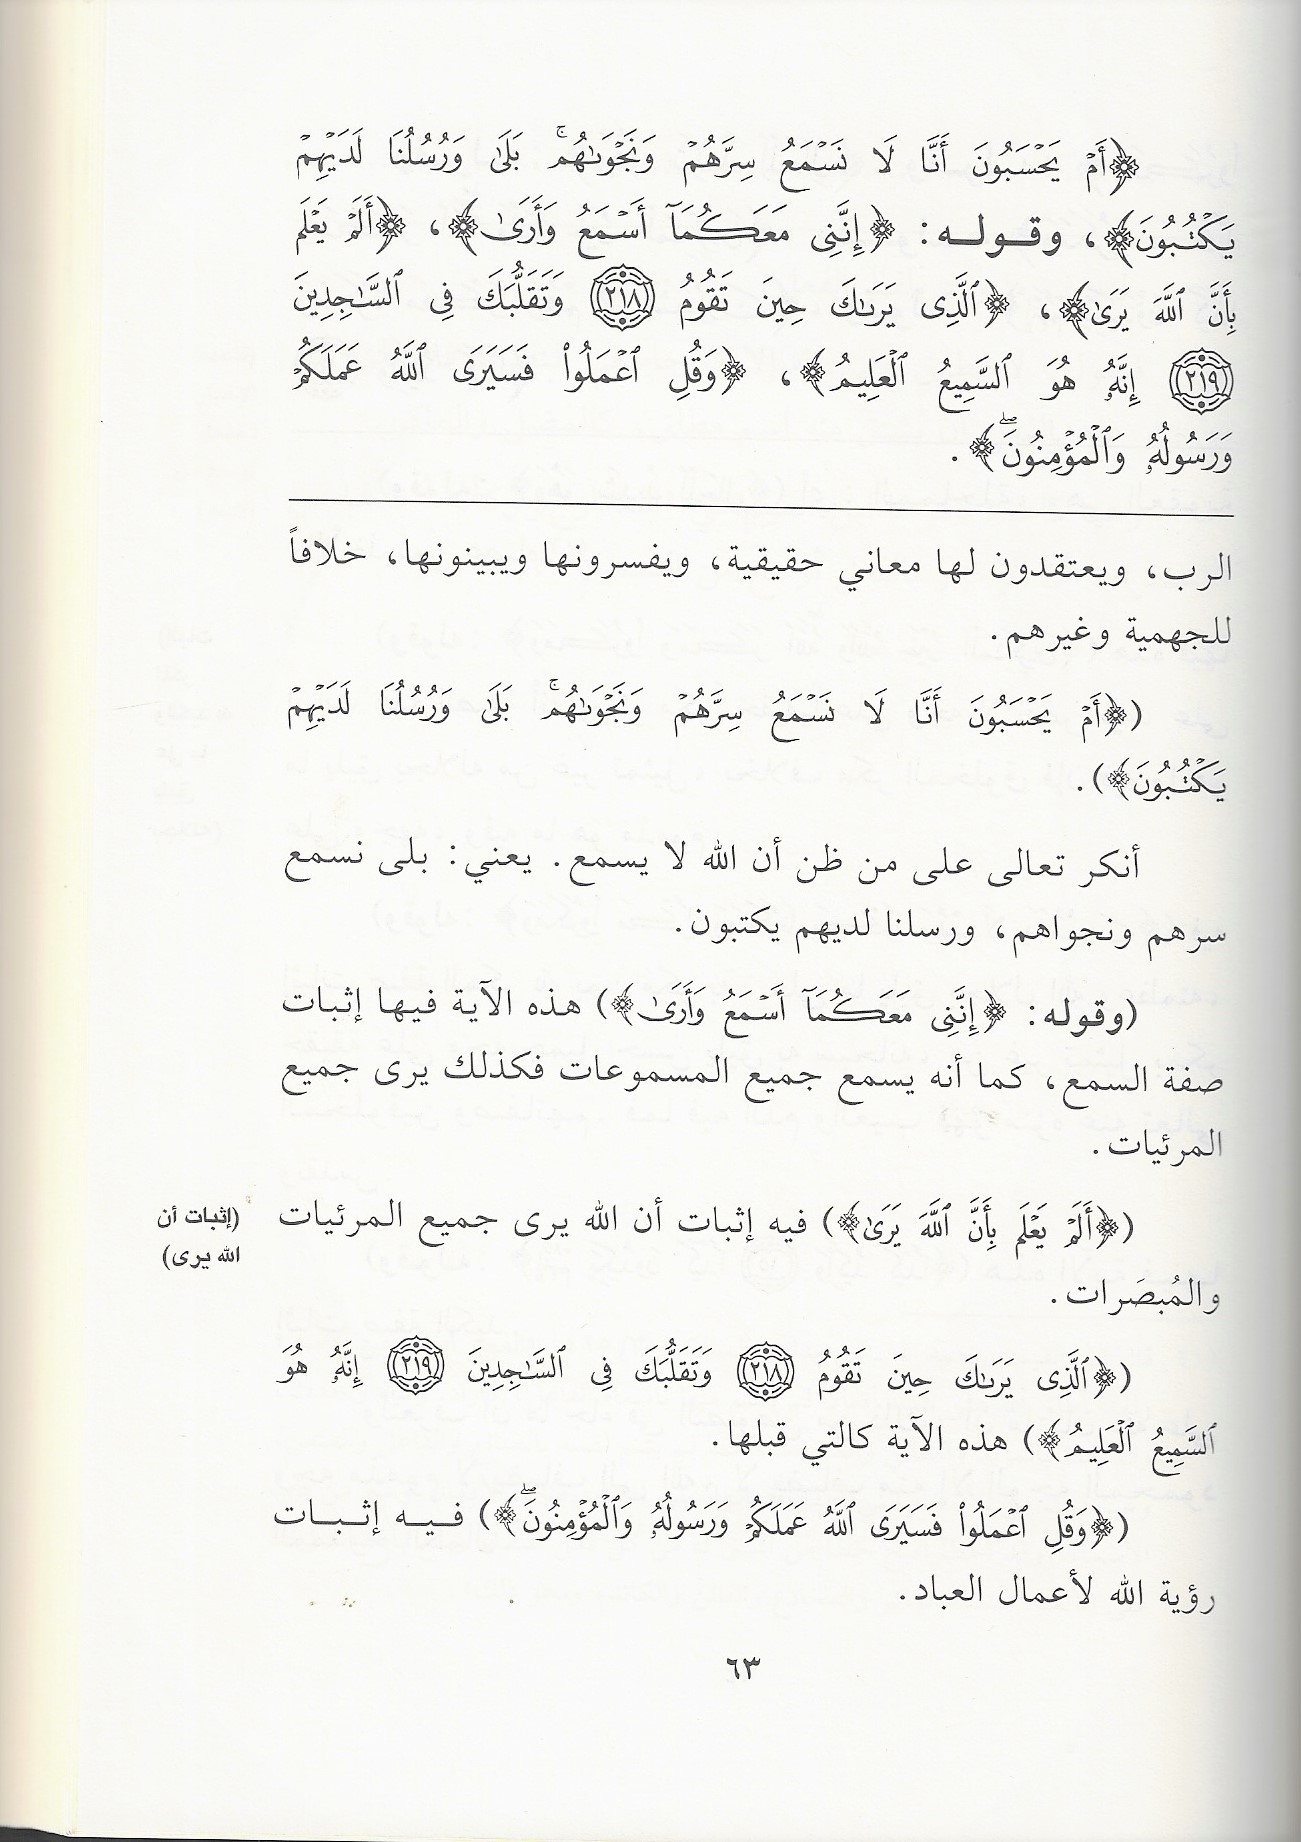 ﴿أَمْ يَحْسَبُونَ أَنَّا لَا نَسْمَعُ سِرَّهُمْ وَنَجْوَىٰهُم ۚ بَلَىٰ وَرُسُلُنَا لَدَيْهِمْ
يَكْتُبُونَ﴾، وقوله: ﴿إِنَّنِى مَعَكُمَآ أَسْمَعُ وَأَرَىٰ﴾، ﴿أَلَمْ يَعْلَم
بِأَنَّ ٱللَّهَ يَرَىٰ﴾، ﴿ٱلَّذِى يَرَىٰكَ حِينَ تَقُومُ ٢١٨ وَتَقَلُّبَكَ فِى ٱلسَّٰجِدِينَ
٢١٩ إِنَّهُۥ هُوَ ٱلسَّمِيعُ ٱلْعَلِيمُ﴾، ﴿وَقُلِ ٱعْمَلُوا۟ فَسَيَرَى ٱللَّهُ عَمَلَكُمْ
وَرَسُولُهُۥ وَٱلْمُؤْمِنُونَ ۖ﴾.
الرب، ويعتقدون لها معاني حقيقية، ويفسرونها ويبينونها، خلافاً
للجهمية وغيرهم.
(﴿أَمْ يَحْسَبُونَ أَنَّا لَا نَسْمَعُ سِرَّهُمْ وَنَجْوَىٰهُم ۚ بَلَىٰ وَرُسُلُنَا لَدَيْهِمْ
يَكْتُبُونَ﴾).
أنكر تعالى على من ظن أن الله لا يسمع. يعني: بلى نسمع
سرهم ونجواهم، ورسلنا لديهم يكتبون.
(وقوله: ﴿إِنَّنِى مَعَكُمَآ أَسْمَعُ وَأَرَىٰ﴾) هذه الآية فيها إثبات
صفة السمع، كما أنه يسمع جميع المسموعات فكذلك يرى جميع
المرئيات.
(﴿أَلَمْ يَعْلَم بِأَنَّ ٱللَّهَ يَرَىٰ﴾) فيه إثبات أن الله يرى جميع المرئيات
والمُبصَرات.
(إثبات أن
الله يرى)
(﴿ٱلَّذِى يَرَىٰكَ حِينَ تَقُومُ ٢١٨ وَتَقَلُّبَكَ فِى ٱلسَّٰجِدِينَ ٢١٩ إِنَّهُۥ هُوَ
ٱلسَّمِيعُ ٱلْعَلِيمُ﴾) هذه الآية كالتي قبلها.
(﴿وَقُلِ ٱعْمَلُوا۟ فَسَيَرَى ٱللَّهُ عَمَلَكُمْ وَرَسُولُهُۥ وَٱلْمُؤْمِنُونَ ۖ﴾) فيه إثبات
رؤية الله لأعمال العباد.
٦٣